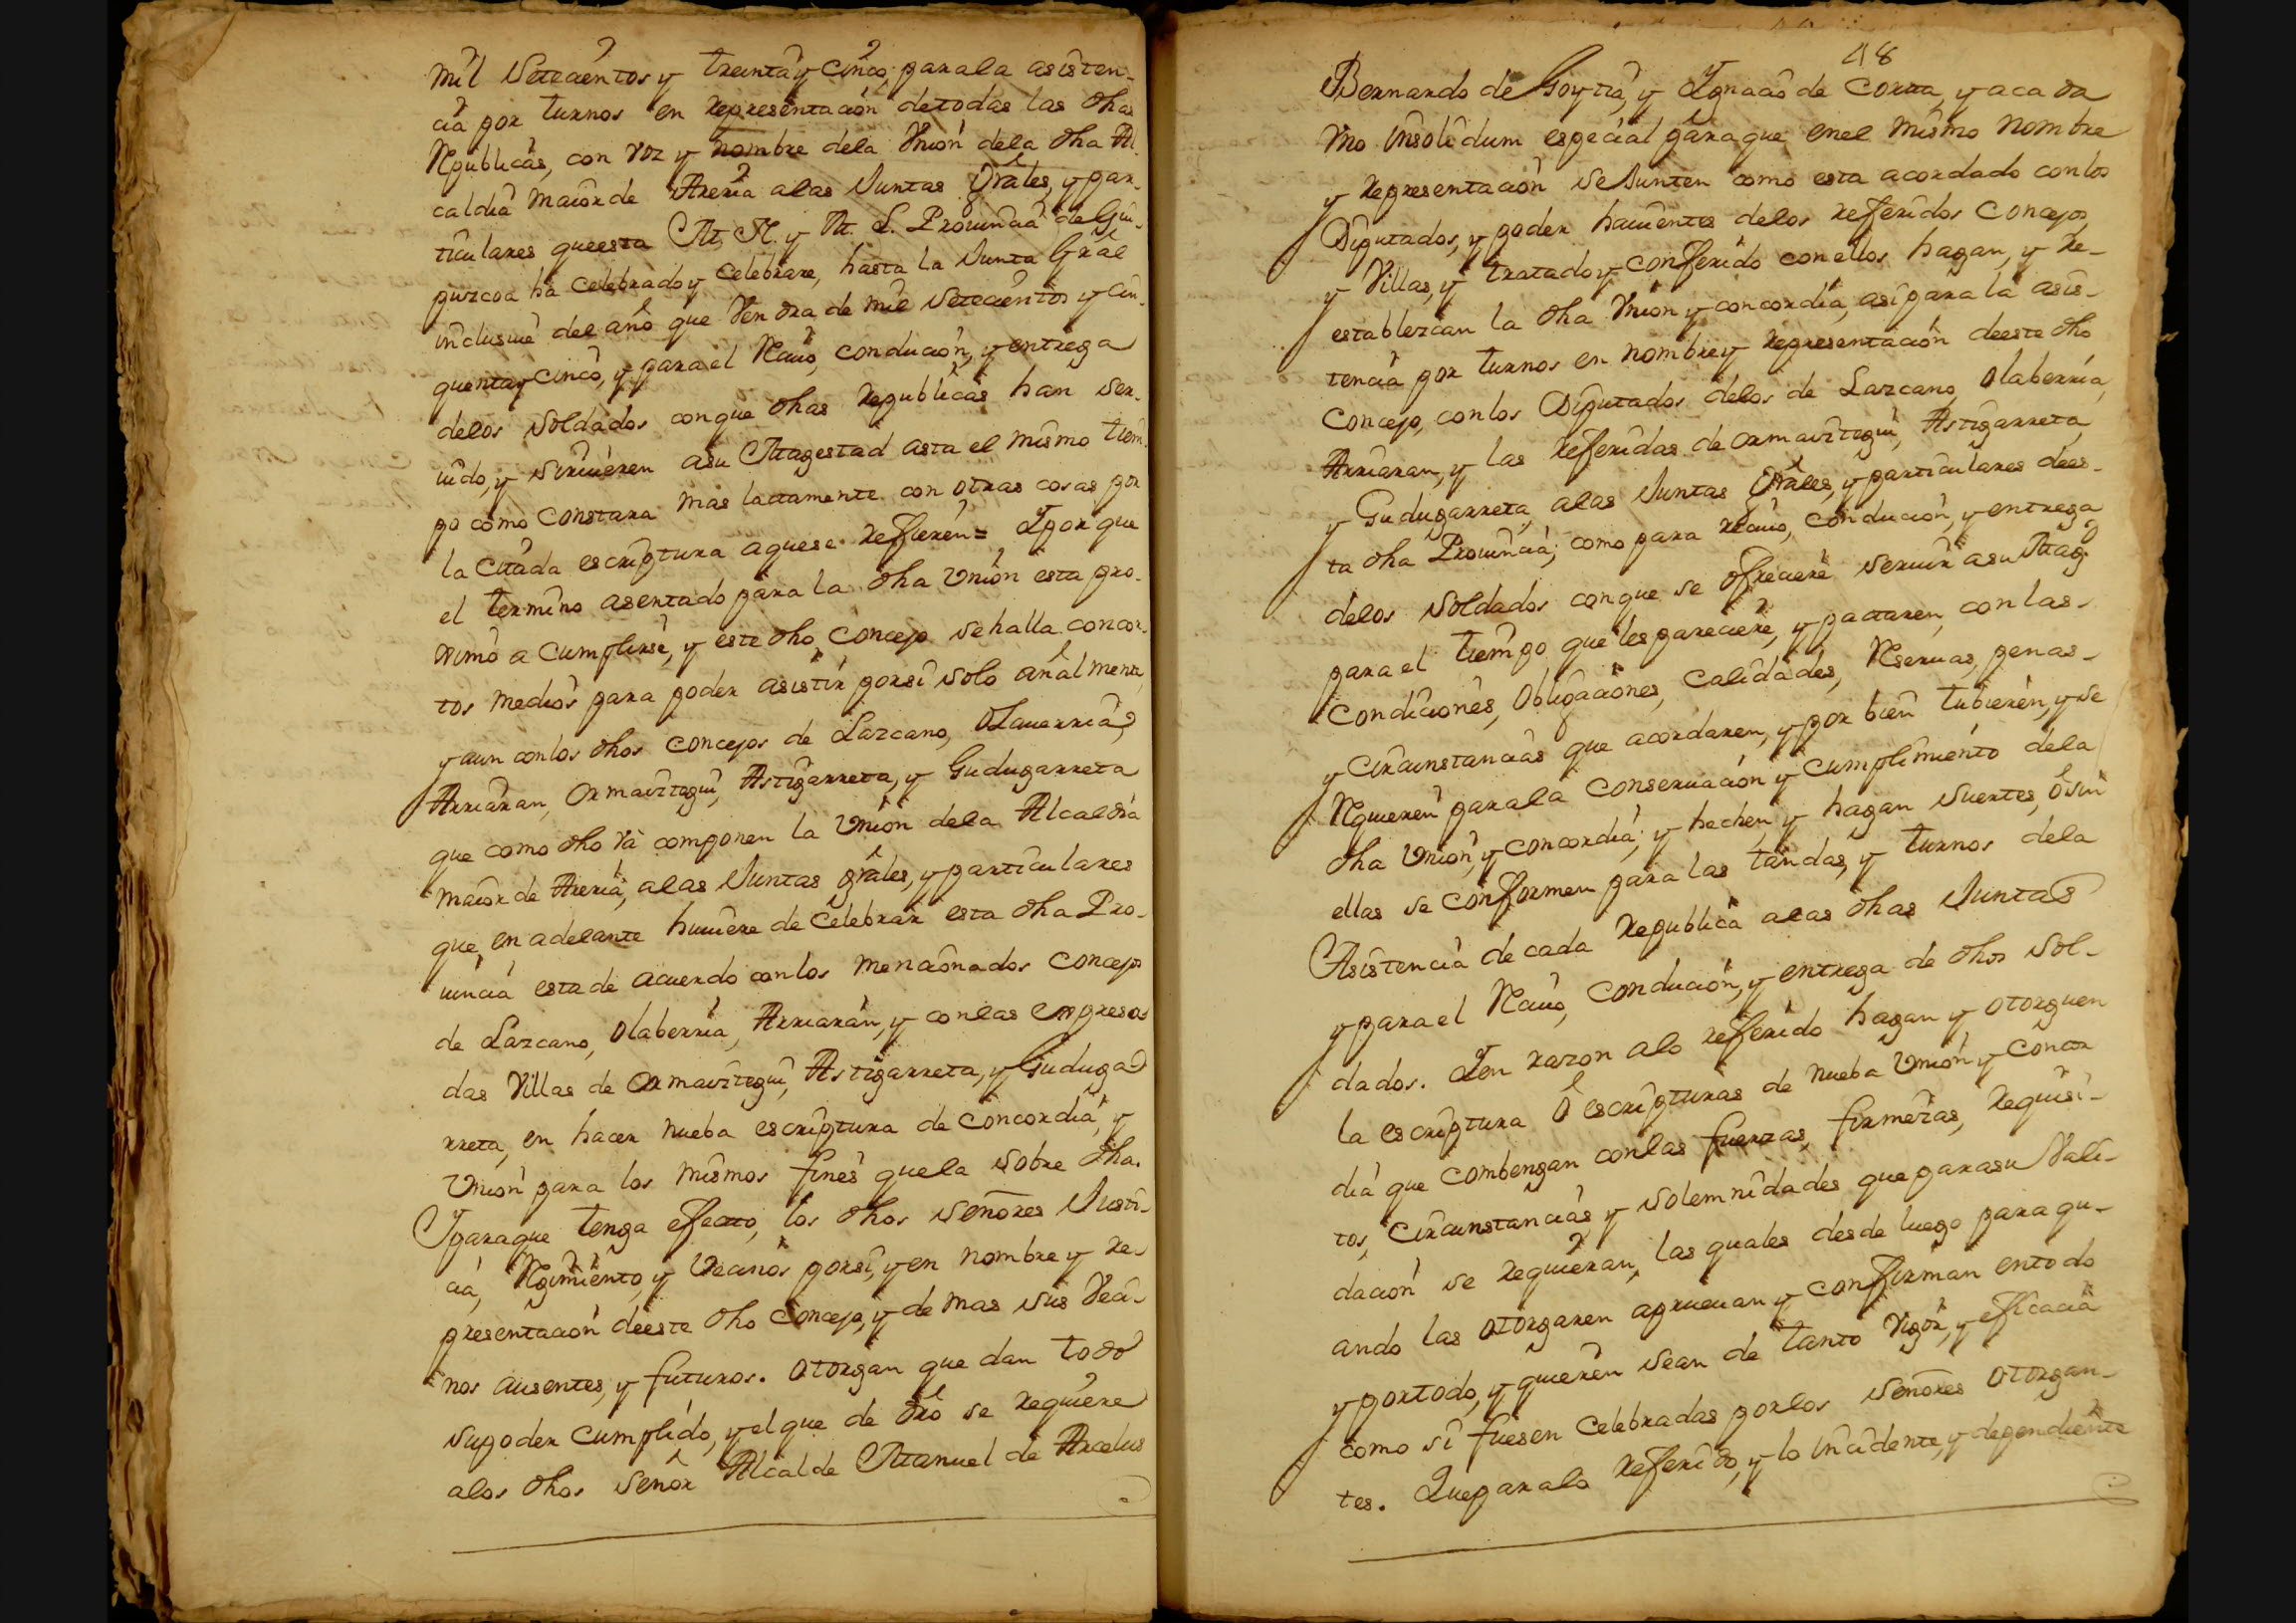 mil setecientos y treinta y cinco, para la asisten-
cia por turnos en representacion de todas las dhas
Republicas, con voz y nombre de la Union de la dha Al-
caldia maior de Areria a las Juntas Grâles, y par-
ticulares que esta M. N. y M. L. Provincia de Gui-
puzcoa ha celebrado y celebrare, hasta la Junta Grâl
inclusive del año que vendra de mil setecientos y cin-
quenta y cinco, y para el Reciuo, conducion, y entrega
de los soldados con que dhas Republicas han ser-
uido, y siruieren a su Magestad asta el mismo tiem-
po como constara mas lactamente con otras cosas por
la citada escriptura a que se refieren = Y por que
el termino asentado para la dha Union esta pro-
ximo a cumplirse, y este dho Concejo se halla con cor-
tos medios para poder asistir por si solo añalmente,
y aun con los dhos Concejos de Lazcano, Olauerria,
Arriaran, Ormaiztegui, Astigarreta, y Gudugarreta
que como dho va componen la Union de la Alcaldia
maior de Areria, a las Juntas grâles, y particulares
que, en adelante huuiere de celebrar esta dha Pro-
uincia esta de acuerdo con los mencionados Concejos
de Lazcano, Olaberria, Arriaran, y con las expresa-
das Villas de Ormaiztegui, Astigarreta, y Guduga-
rreta, en hacer nueba escriptura de concordia, y
Union para los mismos fines que la sobre dha.
Y para que tenga efecto, los dhos señores Justi-
cia, Regimiento, y Vecinos por si, y en nombre y re-
presentacion de este dho Concejo, y de mas sus Veci-
nos ausentes, y futuros. Otorgan que dan todo
su poder cumplido, y el que de dro se requiere
a los dhos señor Alcalde Manuel de Arcelus
48
Bernardo de Goytia, y Ygnacio de Corta, y a cada
vno insolidum especial para que en el mismo nombre
y representacion se junten como esta acordado con los
Diputados, y poder hauientes de los referidos Concejos,
y Villas, y tratado y conferido con ellos hagan, y re-
establezcan la dha Union y concordia, asi para la asis-
tencia por turnos en nombre y representacion de este dho
Concejo, con los Diputados de los de Lazcano, Olaberria,
Arriaran, y las referidas de Ormaiztegui, Astigarreta,
y Gudugarreta, a las Juntas Grâles, y particulares de es-
ta dha Prouincia; como para reciuo, conducion, y entrega
de los soldados con que se ofreciere seruir a su Mag.
para el tiempo que les pareciere, y pactaren, con las
condiciones, obligaciones, calidades, Reseruas, penas
y circunstancias que acordaren, y por bien tubieren, y se
Requieren para la conseruacion y cumplimiento de la
dha Union, y concordia; y hechen y hagan suertes, ó sin
ellas se conformen para las tandas, y turnos de la
Asistencia de cada Republica a las dhas Juntas
y para el Reciuo, conducion, y entrega de dhos sol-
dados. Y en razon a lo referido hagan y otorguen
la escriptura ó escripturas de nueba Union y Concor
dia que combengan con las fuerzas, firmezas, requisi-
tos, circunstancias, y solemnidades que para su Vali-
dacion se requieran, las quales desde luego para qu-
ando las otorgaren aprueuan y confirman en todo
y por todo, y quieren sean de tanto vigor, y eficacia
como si fuesen celebradas por los señores otorgan-
tes. Que para lo referido, y lo incidente, y dependiente